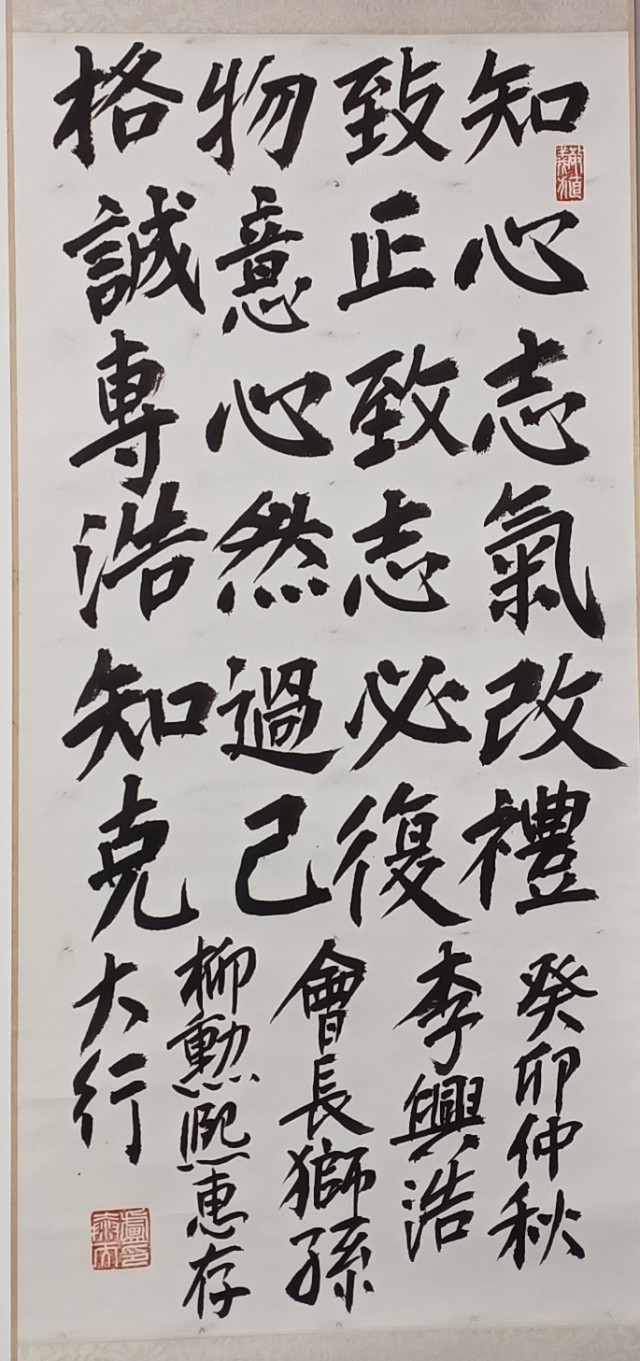 格物致知
誠意正心
專心致志
浩然志氣
知過必改
克己復禮
癸卯仲秋
李興浩
會長獅孫
柳勳熙惠存
大行